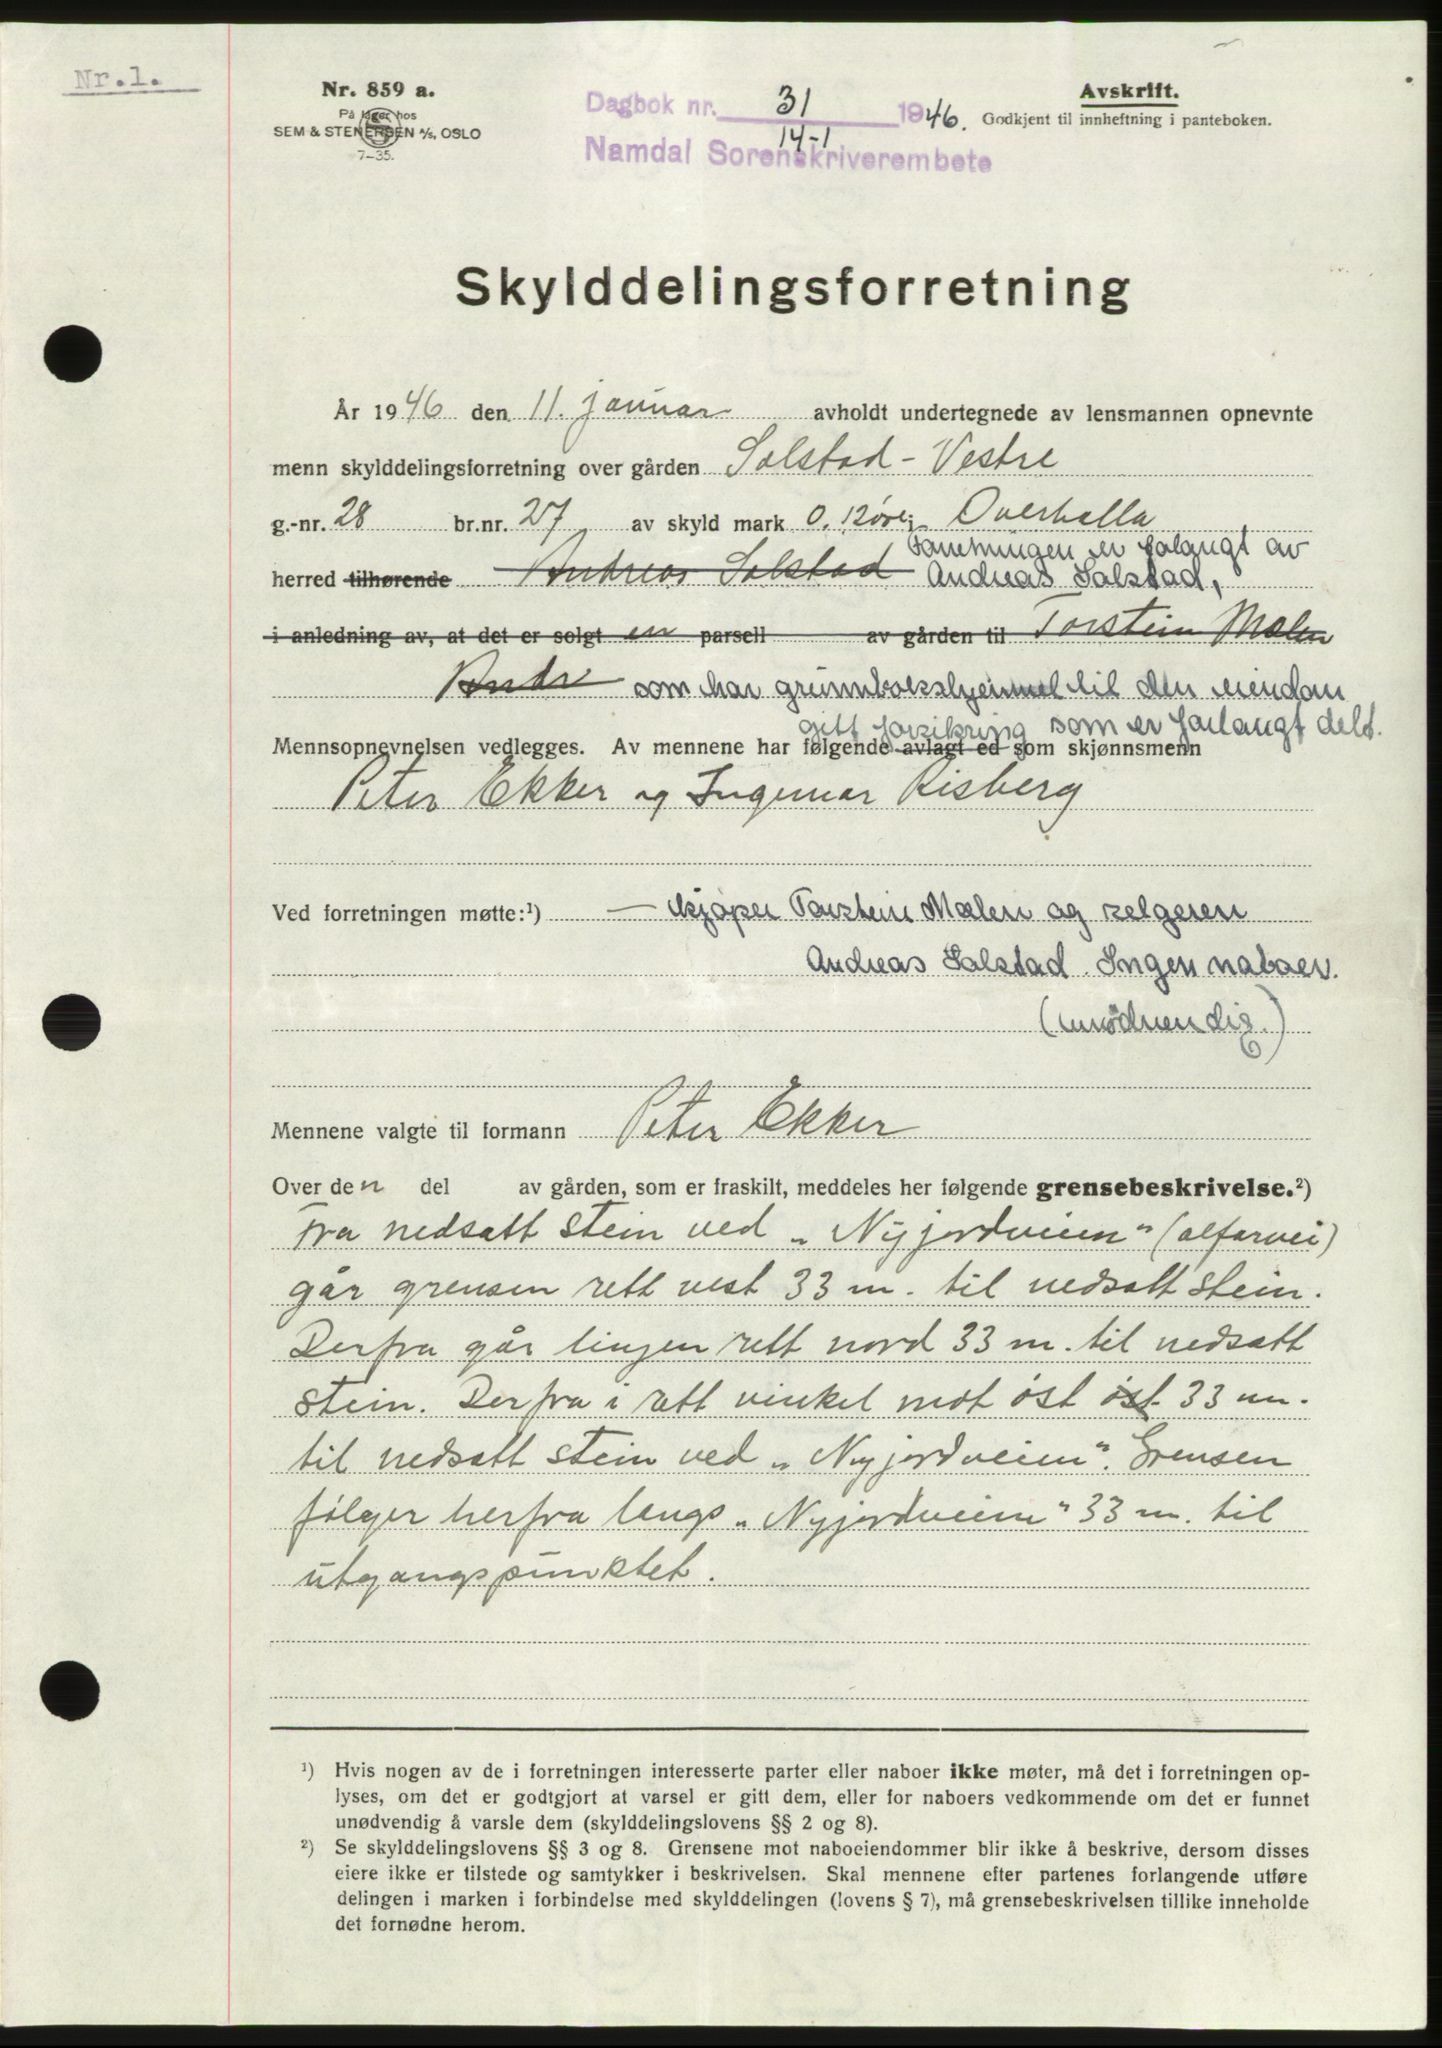 Nr.1.
Nr. 859 a.
På lager hos
SEM & STENERSEN A/S, OSLO
7–35.
Dagbok nr. 31 1946.
14-1
Namdal Sorenskriverembete
Avskrift.
Godkjent til innheftning i panteboken.
Skylddelingsforretning
År 1946 den 11. januar avholdt undertegnede av lensmannen opnevnte
menn skylddelingsforretning over gården Solstad - Vestre
g.-nr. 28 br.nr. 27 av skyld mark 0.12øre i Overhalla
Forretningen er forlangt av
herred tilhørende Andreas Solstad Andreas Salstad,
i anledning av, at det er solgt en parsell av gården til Torstein Mælen
Andr som har grunnbokshjemmel til den eiendom
gitt forsikring som er forlangt delt.
Mennsopnevnelsen vedlegges. Av mennene har følgende avlagt ed som skjønnsmenn
Peter Ekker og Ingemar Risberg
Ved forretningen møtte:¹) — kjøper Torstein Mælen og selgeren
Andreas Salstad. Ingen naboer.
(unødvendig.)
Mennene valgte til formann Peter Ekker
Over den del av gården, som er fraskilt, meddeles her følgende grensebeskrivelse.²)
Fra nedsatt stein ved „Nyjordveien" (alfarvei)
går grensen rett vest 33 m. til nedsatt stein.
Derfra går linjen rett nord 33 m. til nedsatt
stein. Derfra i rett vinkel mot øst øst 33 m.
til nedsatt stein ved „Nyjordveien". Grensen
følger herfra langs „Nyjordveien" 33 m. til
utgangspunktet.
¹) Hvis nogen av de i forretningen interesserte parter eller naboer ikke møter, må det i forretningen op-
lyses, om det er godtgjort at varsel er gitt dem, eller for naboers vedkommende om det er funnet
unødvendig å varsle dem (skylddelingslovens §§ 2 og 8).
²) Se skylddelingslovens §§ 3 og 8. Grensene mot naboeiendommer blir ikke å beskrive, dersom disses
eiere ikke er tilstede og samtykker i beskrivelsen. Skal mennene efter partenes forlangende utføre
delingen i marken i forbindelse med skylddelingen (lovens § 7), må grensebeskrivelsen tillike inneholde
det fornødne herom.